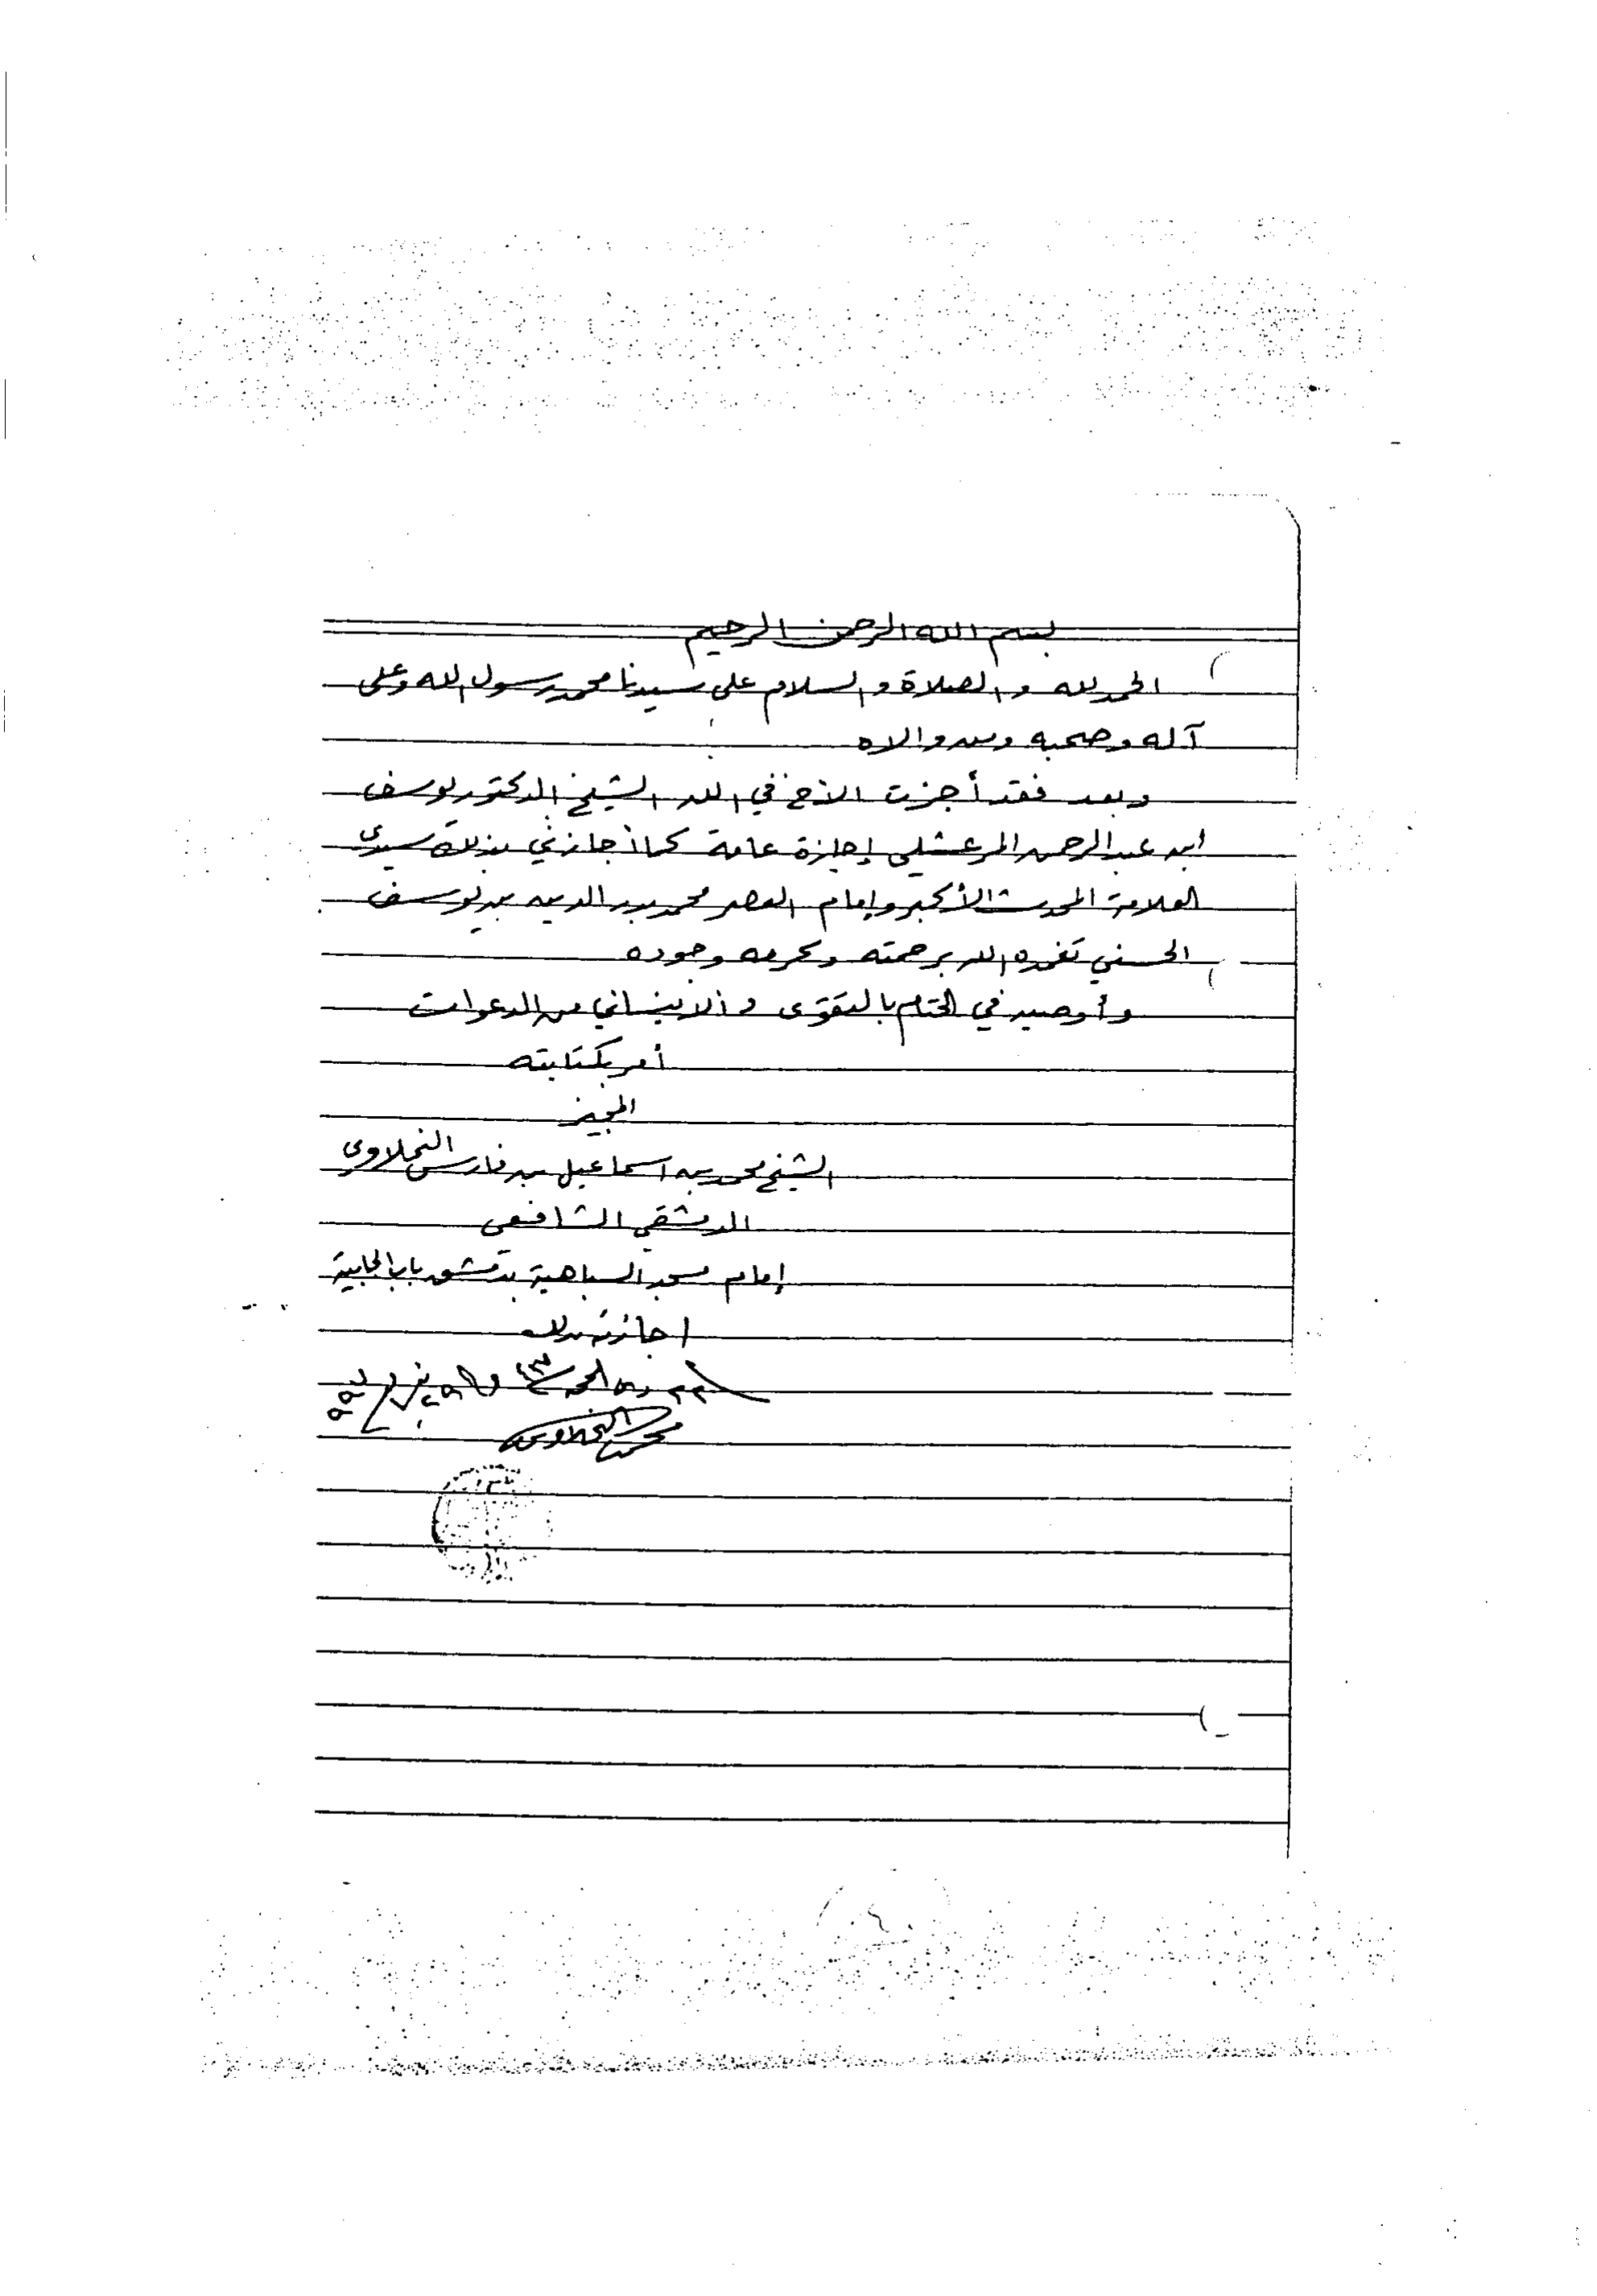 بسم الله الرحمن الرحيم
الحمد لله والصلاة والسلام على سيدنا محمد رسول الله وعلى
آله وصحبه ومن والاه
وبعد فقد أجزت الأخ في الله الشيخ الدكتور يوسف
ابن عبد الرحمن المرعشلي إجازة عامة كما أجازني بذلك سيدي
العلامة المحدث الأكبر وإمام العصر محمد بدر الدين بن يوسف
الحسني تغمده الله برحمته وكرمه وجوده
وأوصيه في الختام بالتقوى وألا ينساني من الدعوات
أمر بكتابته
المجيز
الشيخ محمد بن اسماعيل بن فارس النحلاوي
الدمشقي الشافعي
إمام مسجد السباهية بدمشق باب الجابية
اجازته بذلك
محمد النحلاوي